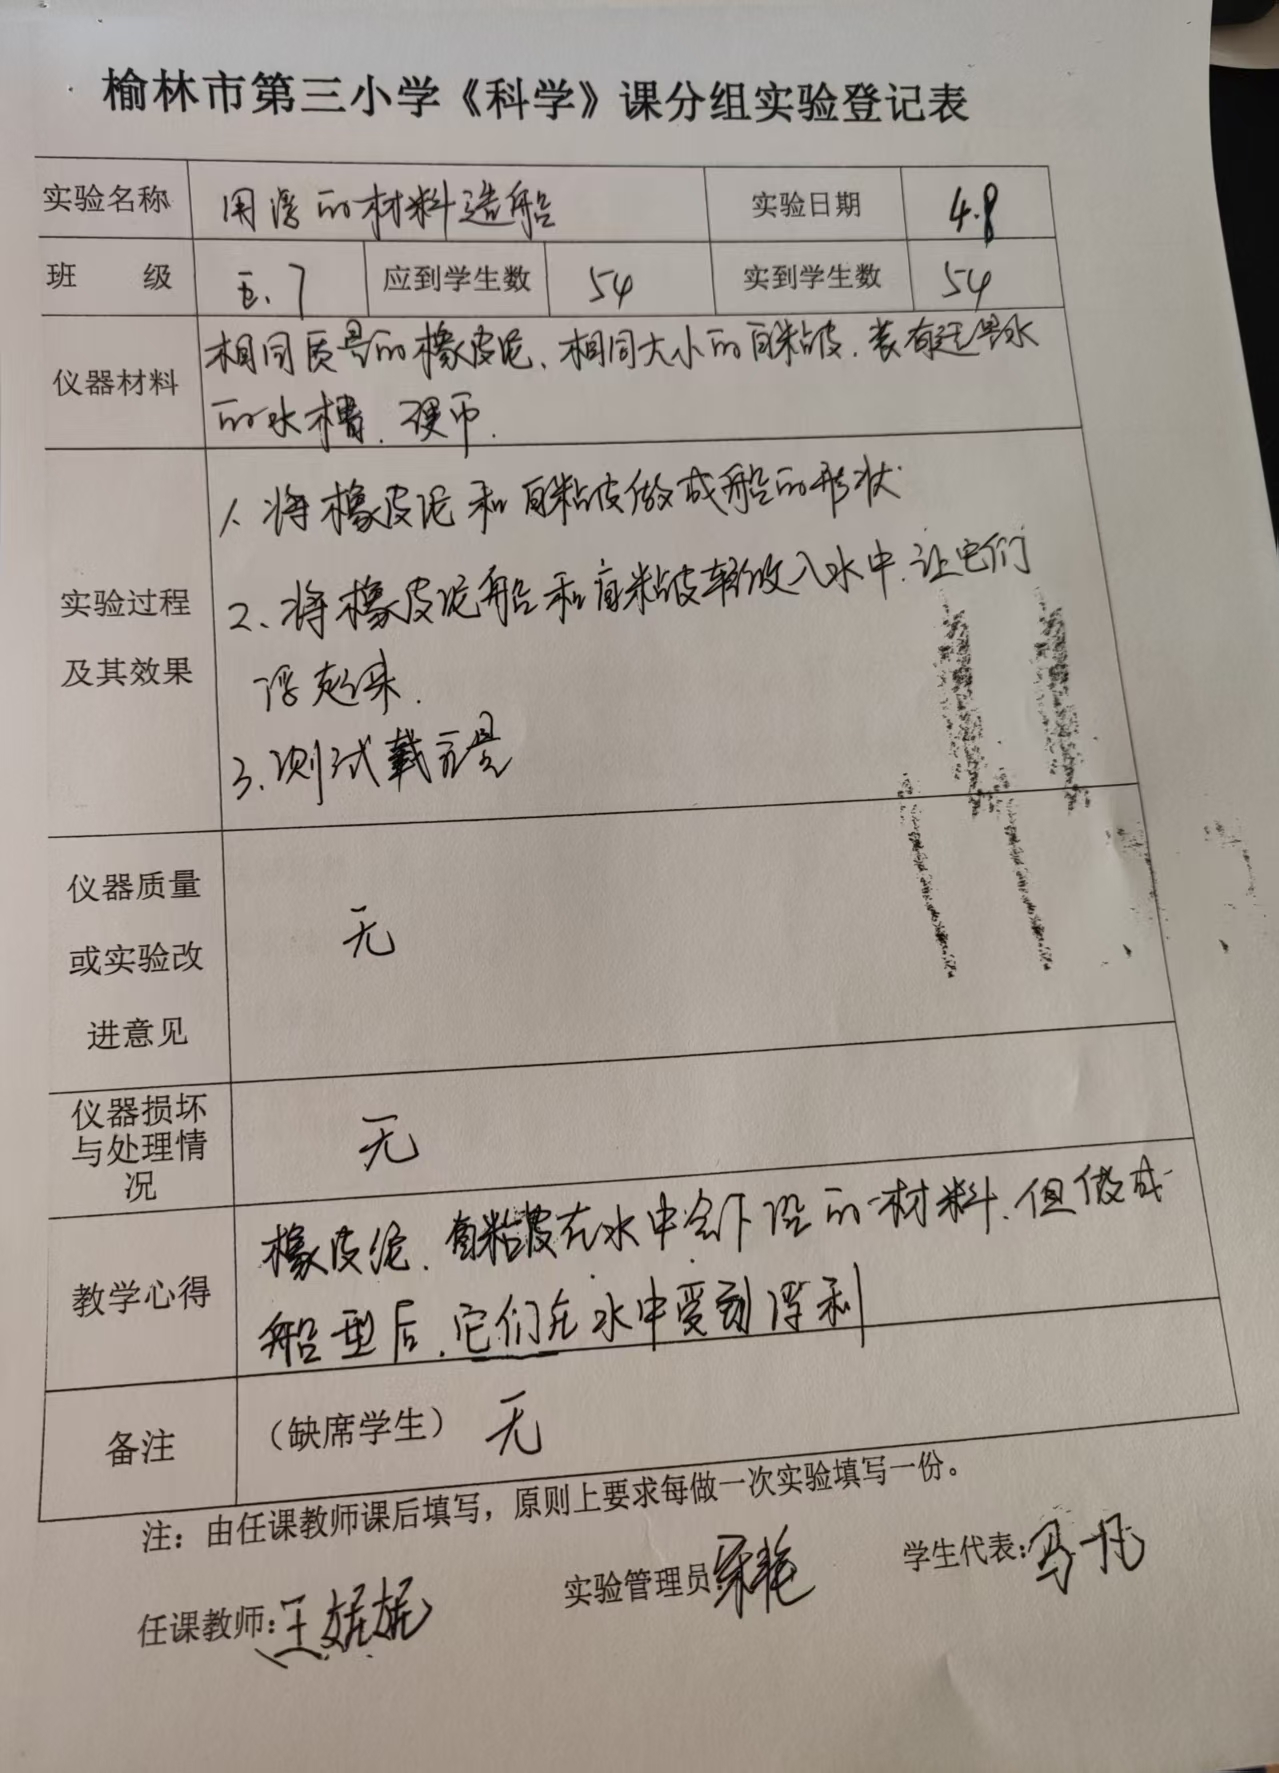 榆林市第三小学《科学》课分组实验登记表
实验名称 用浮的材料造船 实验日期 4.8
班 级 五.7 应到学生数 54 实到学生数 54
仪器材料
相同质量的橡皮泥、相同大小的自粘皮.装有适量水
的水槽.硬币.
实验过程
及其效果
1.将橡皮泥和自粘皮做成船的形状.
2、将橡皮泥船和自粘皮轻放入水中.让它们
浮起来.
3.测试载重量
仪器质量
或实验改
进意见
无
仪器损坏
与处理情
况
无
教学心得
橡皮泥.自粘皮在水中会下沉的材料.但做成
船型后.它们在水中受到浮利
备注 （缺席学生） 无
注：由任课教师课后填写，原则上要求每做一次实验填写一份。
任课教师:王娓娓 实验管理员 宋艳 学生代表:马一凡